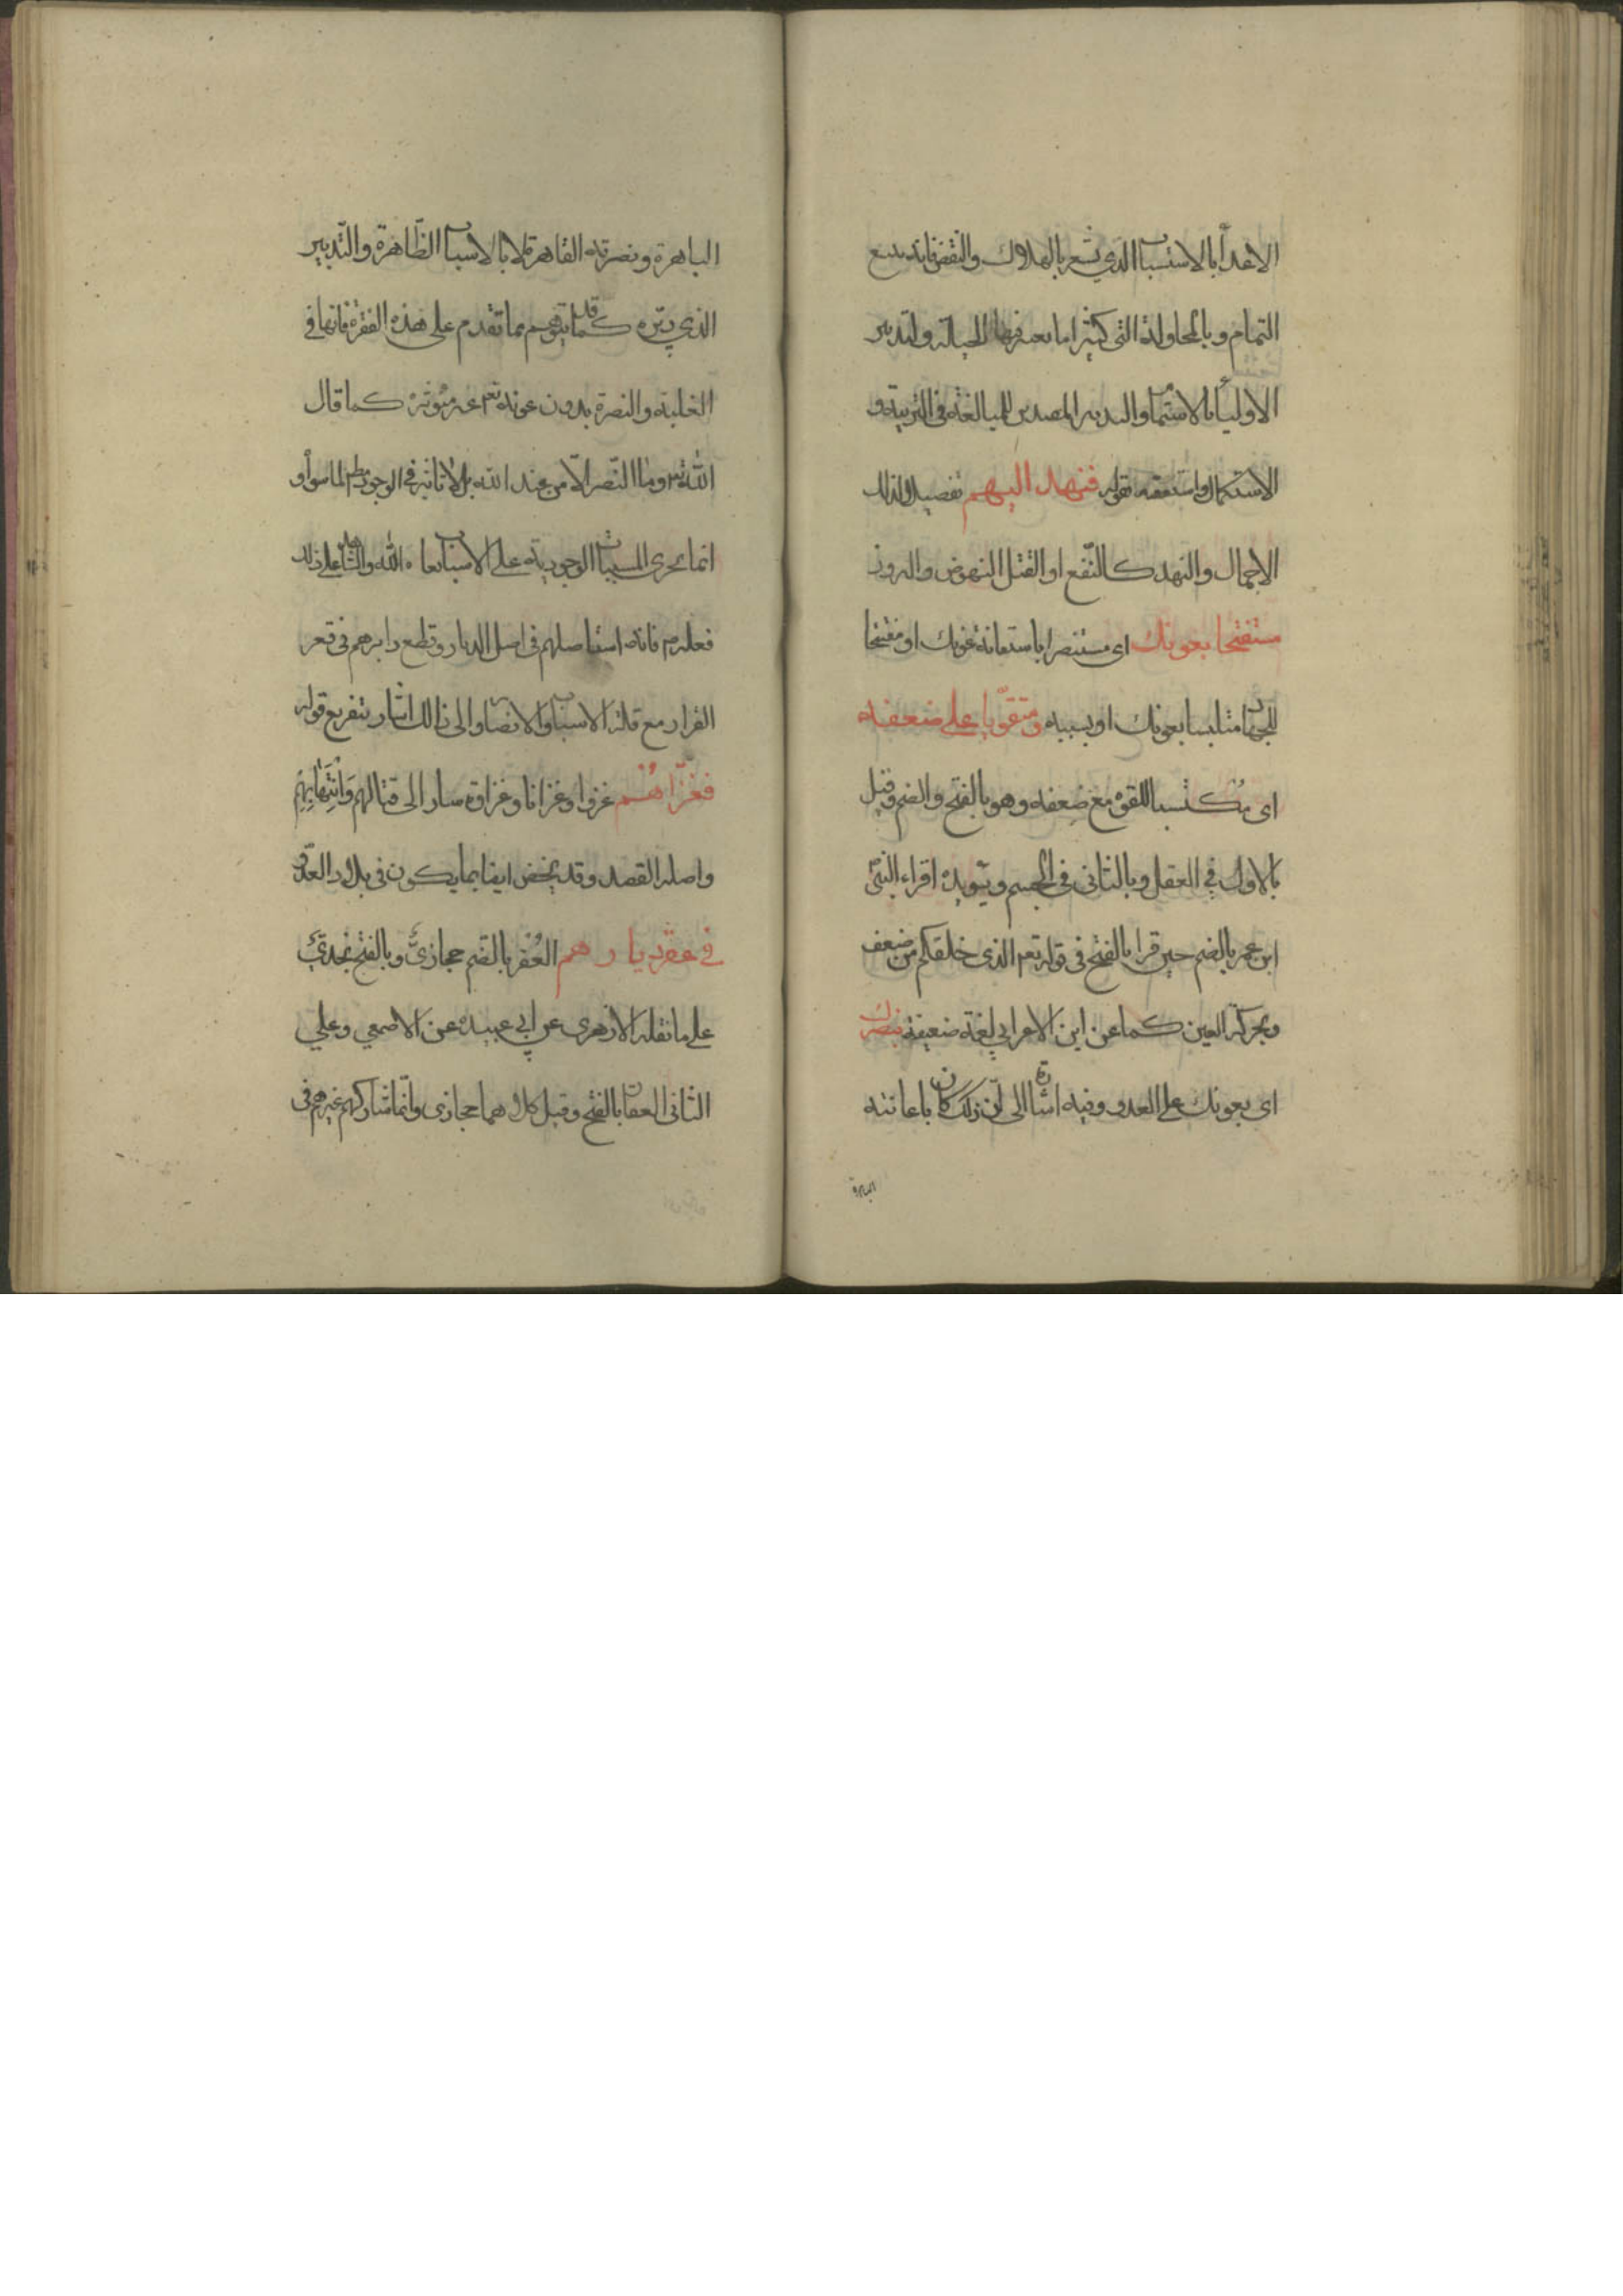 الاعدآ بالاستتباب الذى تشعر بالهلاوك والنقض فانه يتبع
التمام وبالمحاولة التى كثيرا ما يعتبر فيها الحيلة ولتدبير
الاوليآ بالاستتمام والتدبير المصدرين للمبالغة فى التربية و
الاستكمال واستعقبه بقوله فنهد اليهم تفصيلا لذلك
الاجمال والنهد كالنّفع او القتل النهوض والبروز
مستفتحا بعونك اى مستنصرا باستعانة عونك او مفتتحا
للجهاد متلبسا بعونك او بسببه ومتقوّيا على ضعفه
اى مكتسبا للقوة مع ضعفه وهو بالفتح والضم وقيل
بالاول فى العقل وبالثانى فى الجسم ويؤيده اقراء النبىّ
ابن عمر بالضم حين قرا بالفتح فى قوله تعم الذى خلقكم من ضعف
وبحركة العين كما عن ابن الاعرابي لغة ضعيفة بنصرك
اى بعونك على العدو وفيه اشارة الى ان ذلك كان باعانته
الباهرة
الباهرة ونصرته القاهرة لا بالاسباب الظّاهرة والتّدبير
الذي دبّره كما قد يتوهم مما تقدم على هذه الفقرة فانها فى
الغلبة والنصرة بدون عونه تعم غير مؤثرة كما قال
اللّه تعم وما النّصر الاّ من عند اللّه بل لا تاثير فى الوجود مطلقا لما سواه و
انما يجرى المسببات الوجودية على الاسباب بعادة اللّه والشاهد على ذلك
فعله ص فانه استاصلهم فى اصل الديار وقطع دابرهم فى قعر
القرار مع قلة الاسباب والانصار والى ذالك اشار بتفريع قوله
فغزاهم غزوا وغزانا وغزاوة سار الى قتالهم وانتهابهم
واصله القصد وقد يخص ايضا بما يكون فى بلاد العدّو
فى عقر ديارهم العُقر بالضم حجازىّ وبالفتح نجدىّ
على ما نقله الازهرى عن ابي عبيدة عن الاصمعي وعلي
الثانى العقار بالفتح وقيل كلاهما حجازى وانّما شاركهم غيرهم فى